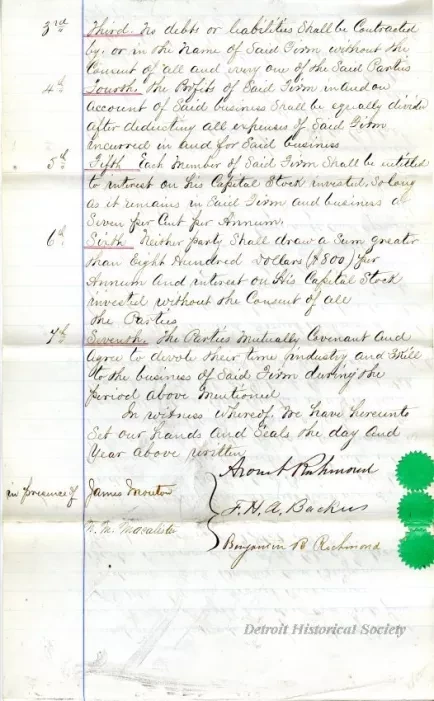 3rd Third. No debts or liabilities Shall be Contracted
by, or in the Name of Said Firm without the
Consent of all and every one of the Said Parties
4th Fourth. The Profits of Said Firm in and on
Account of Said business Shall be equally divided
after deducting all expenses of Said Firm
incurred in and for Said business
5th Fifth Each Member of Said Firm Shall be intitled
to interest on his Capital Stock invested, So long
as it remains in Said Firm and business a
Seven per Cent per Annum.
6th Sixth Neither party Shall draw a Sum greater
than Eight Hundred Dollars ($800) per
Annum and interest on His Capital Stock
invested without the Consent of all
the Parties
7th Seventh. The Parties Mutually Covenant and
agree to devote their time industry and Skill
to the business of Said Firm during the
period above Mentioned
In witness whereof, We have hereunto
Set our hands and Seals the day and
Year above written
Richmond
in presence of James
F. H. A. Backus
Benjamin B Richmond
Detroit Historical Society